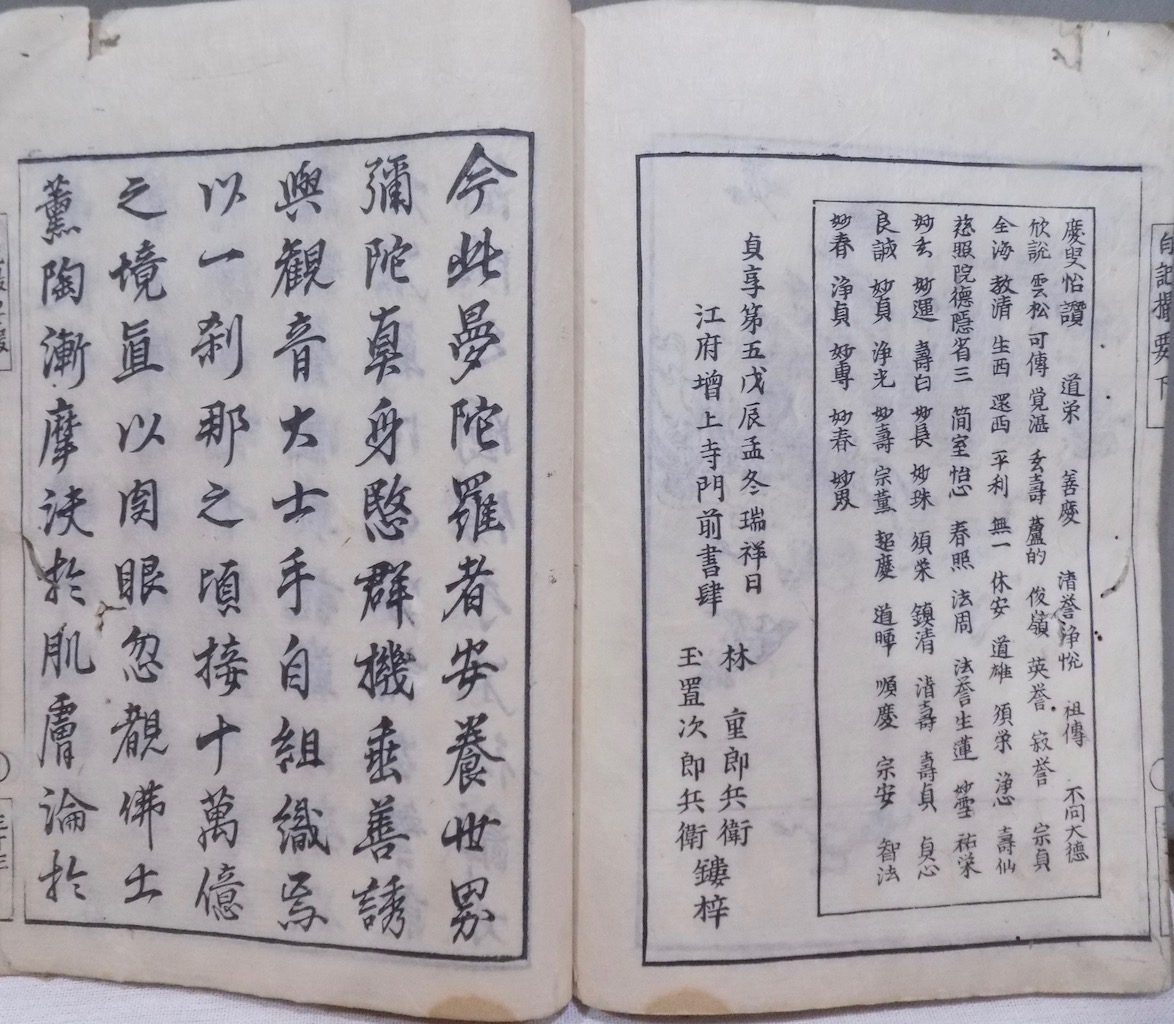 白記撮要下
慶叟怡讚 道栄 善慶 清誉浄悦 祖傳 不向大德
欣説 雲松 可傳 覚湛 玄壽 蘆的 俊嶺 英誉 寂誉 宗貞
全海 教清 生西 還西 平利 無一 休安 道雄 須栄 浄心 壽仙
慈照院德隱省三 簡室怡心 春照 法周 法誉生蓮 妙雪 祐栄
妙玄 妙運 壽白 妙長 妙珠 須栄 鎮清 清壽 壽貞 貞心
良誠 妙貞 浄光 妙壽 宗薫 超慶 道暉 順慶 宗安 智法
妙春 浄貞 妙專 妙春
貞享第五戊辰孟冬瑞祥日
江府增上寺門前書肆
林 重郎兵衛
玉置次郎兵衛 鏤梓
今此曼陀羅者安養世界
彌陀真身愍群機垂善誘
與觀音大士手自組織焉
以一刹那之頃接十萬億
之境直以肉眼忽覩佛土
薫陶漸摩浹於肌膚論於